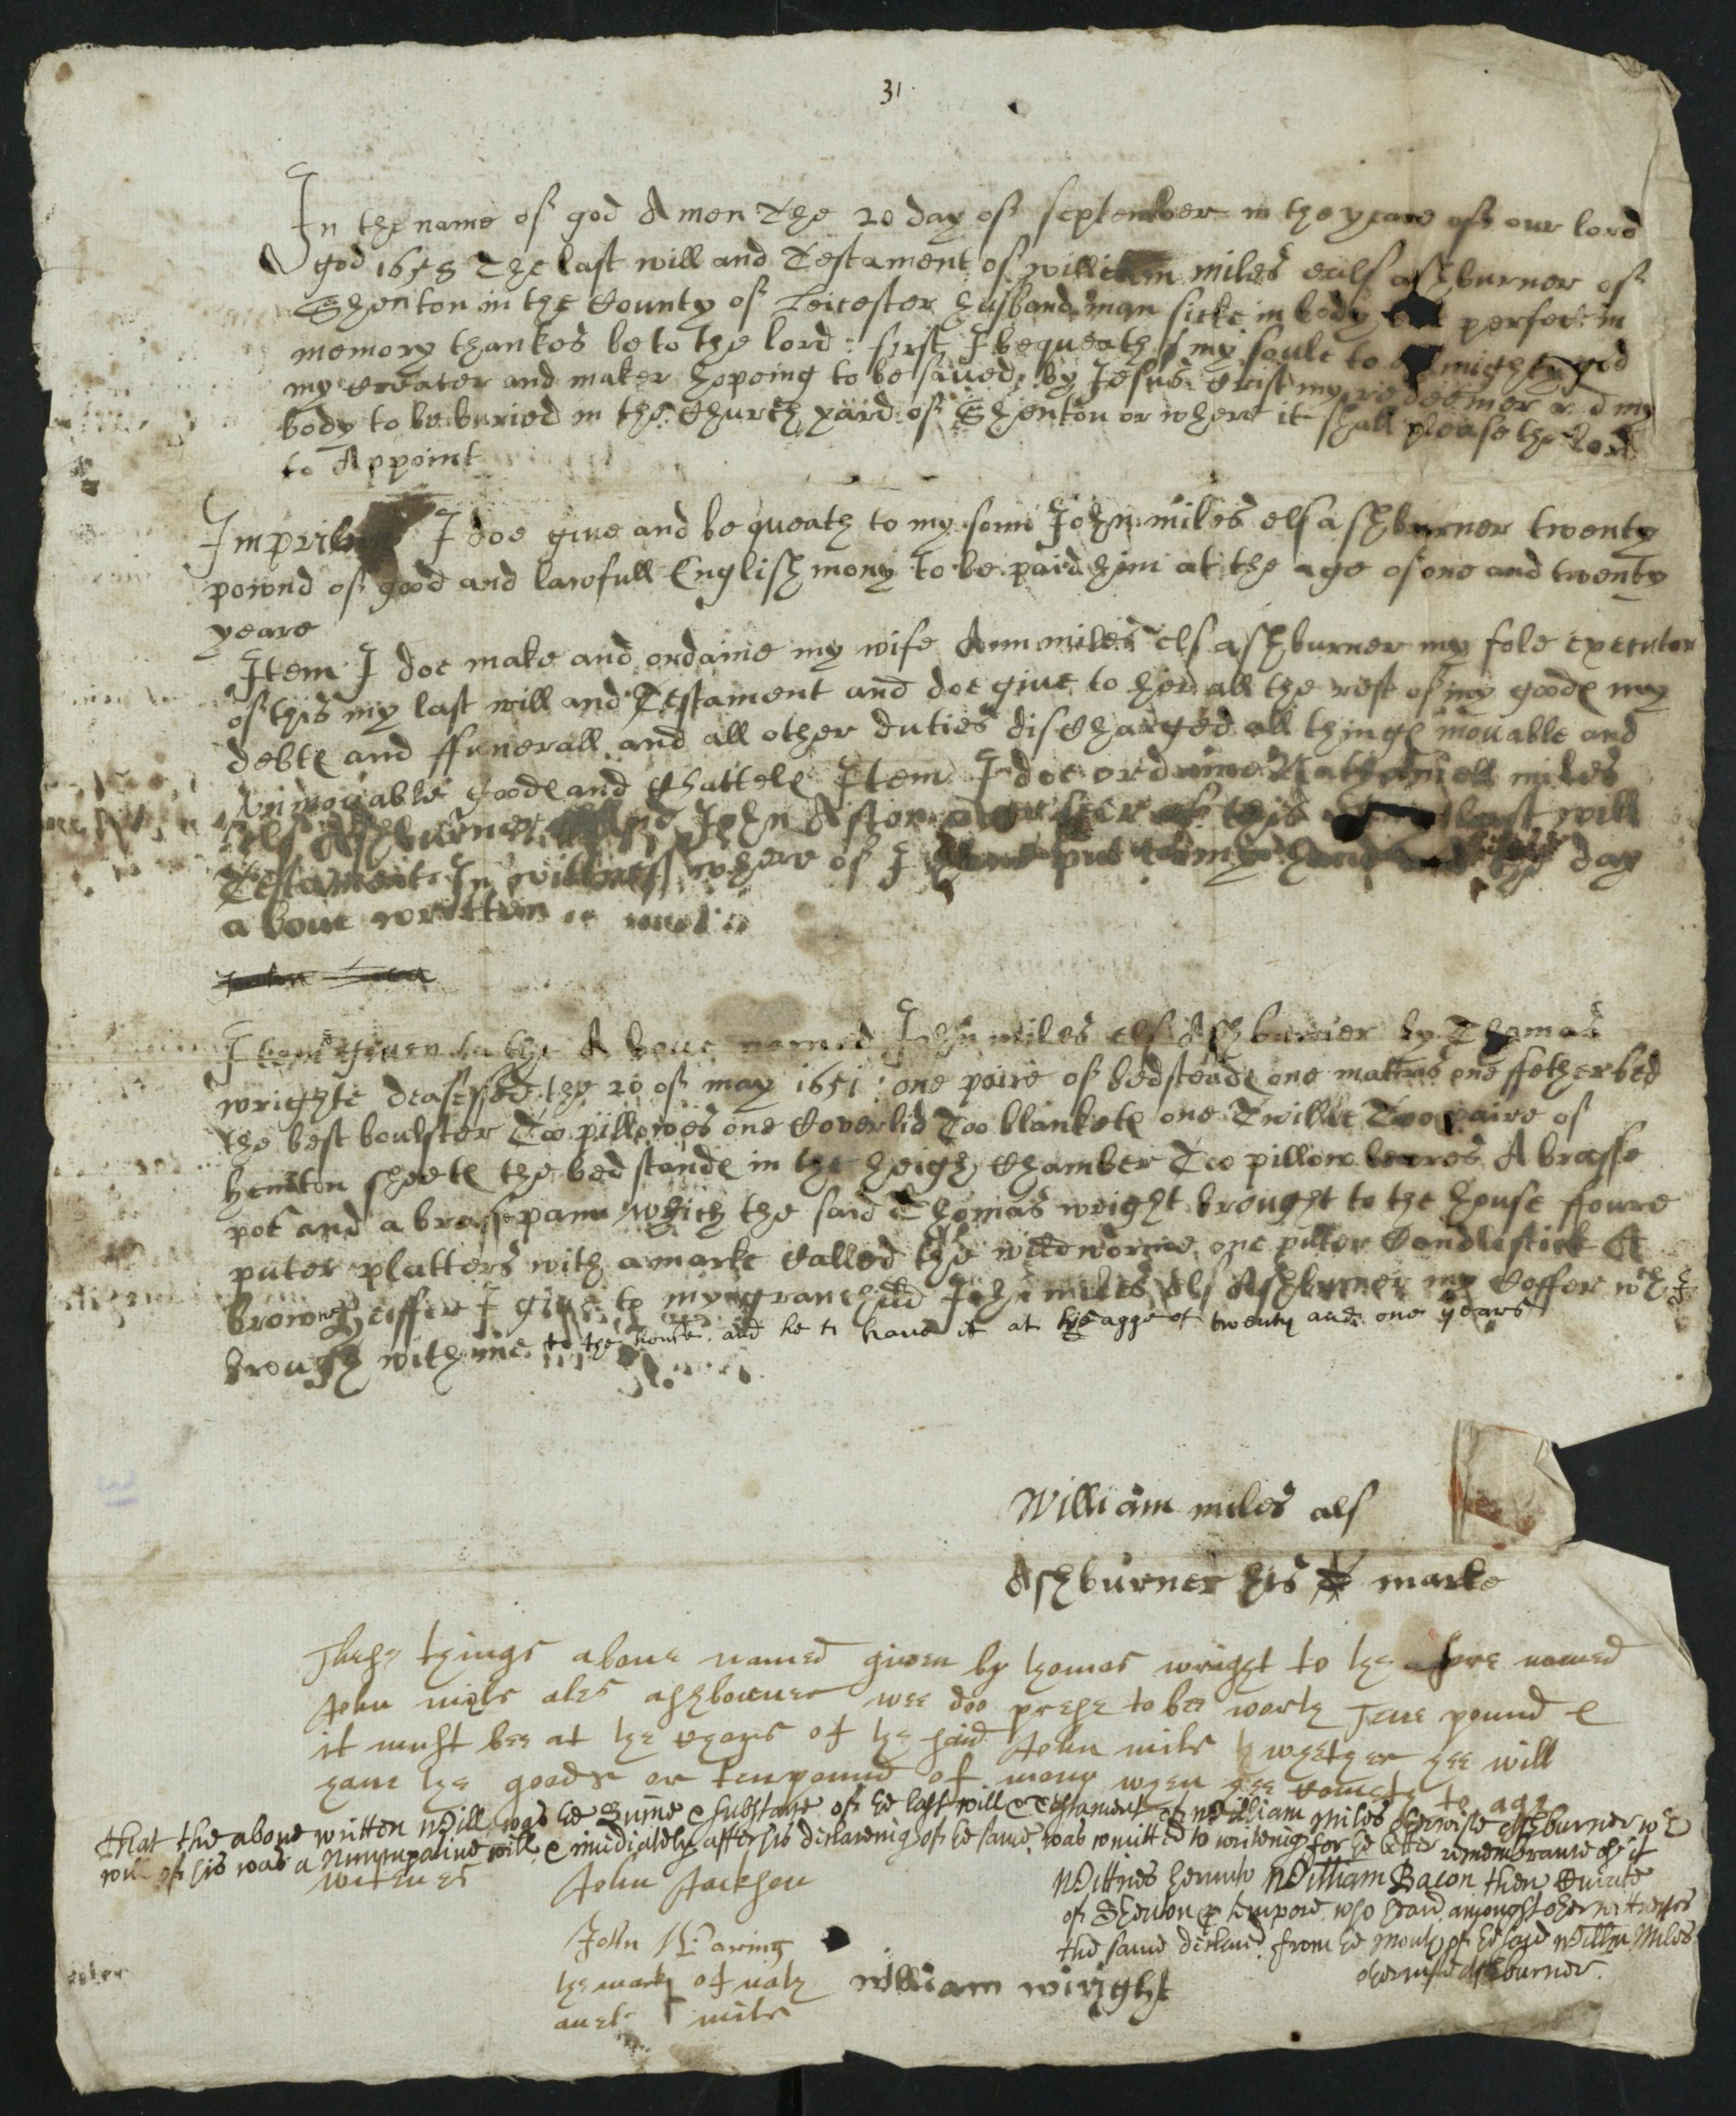 31
In the name of god Amen The 20 day of september in the yeare of our lord
god 1658 The last will and Testament of william miles als ashburner of
Shenton in the County of Leicester husband man sicke in body but perfect in
memory thankes be to the lord : first I bequeath my soule to allmighty god
my creator and maker hopeing to be saved by Jesus Crist my redeemer and my
body to be buried in the Church yard of Shenton or where it shall please the lord
to Appoint
I doe give and be queath to my sonn John miles els ashburner twenty
pownd of good and lawfull English mony to be paid him at the age of one and twenty
yeare
Item I doe make and ordaine my wife Ann miles els ashburner my sole executor
of this my last will and Testament and doe give to her all the rest of my goods my
debts and ffunerall and all other duties discharged all things movable and
Vnmovable goods and Chattels Item I doe ordaine Nathaniell miles
els Ashburner and John Astor of this last will
Testament In wittness where of I have put to my hand the day
a bove written
Item given to the A bove named John miles els Ashburner by Thomas
wrighte deasessed the 20 of may 1651 : one paire of bedsteads one mattris one ffetherbed
the best boulster Too pillowes one Coverlid Too blankets one Twillie Two paire of
hempton sheets the bed stands in the heigh Chamber Two pillow beares A brasse
pot and a brasse pann which the said Thomas wright brought to the house ffoure
puter platters with a marke Called the one puter Candlestick A
browne heiffer I give to my granchild John miles els Ashburner my Coffer wch I
brough with me to the house and he to have it at his agge of twenty and one years
William miles als
Ashburner his marke
These things above named given by thomas wright to the afore named
John mils ales ashborner wee doo prese to bee worth Tene pound &
it must bee at the choys of the said John mils whether hee will
have the goods or tenpound of mony when hee cometh to age
that the above written Will was the Sume & substance of the last will & testament of William Miles otherwise Ashburner wch
will of his was a Nuncupative will & imediatdly after his declareing of the same was comitted to writeing for the better remembrance of it
witenes
John Jackson
John Waring
the mark of nath
anel mils
William wright
Wittnes hereunto William Bacon then Curate
of Shenton p tempore who heard amongst other wittnesses
the same declared from the mouth of the said Willm Miles
otherwise Ashburner.